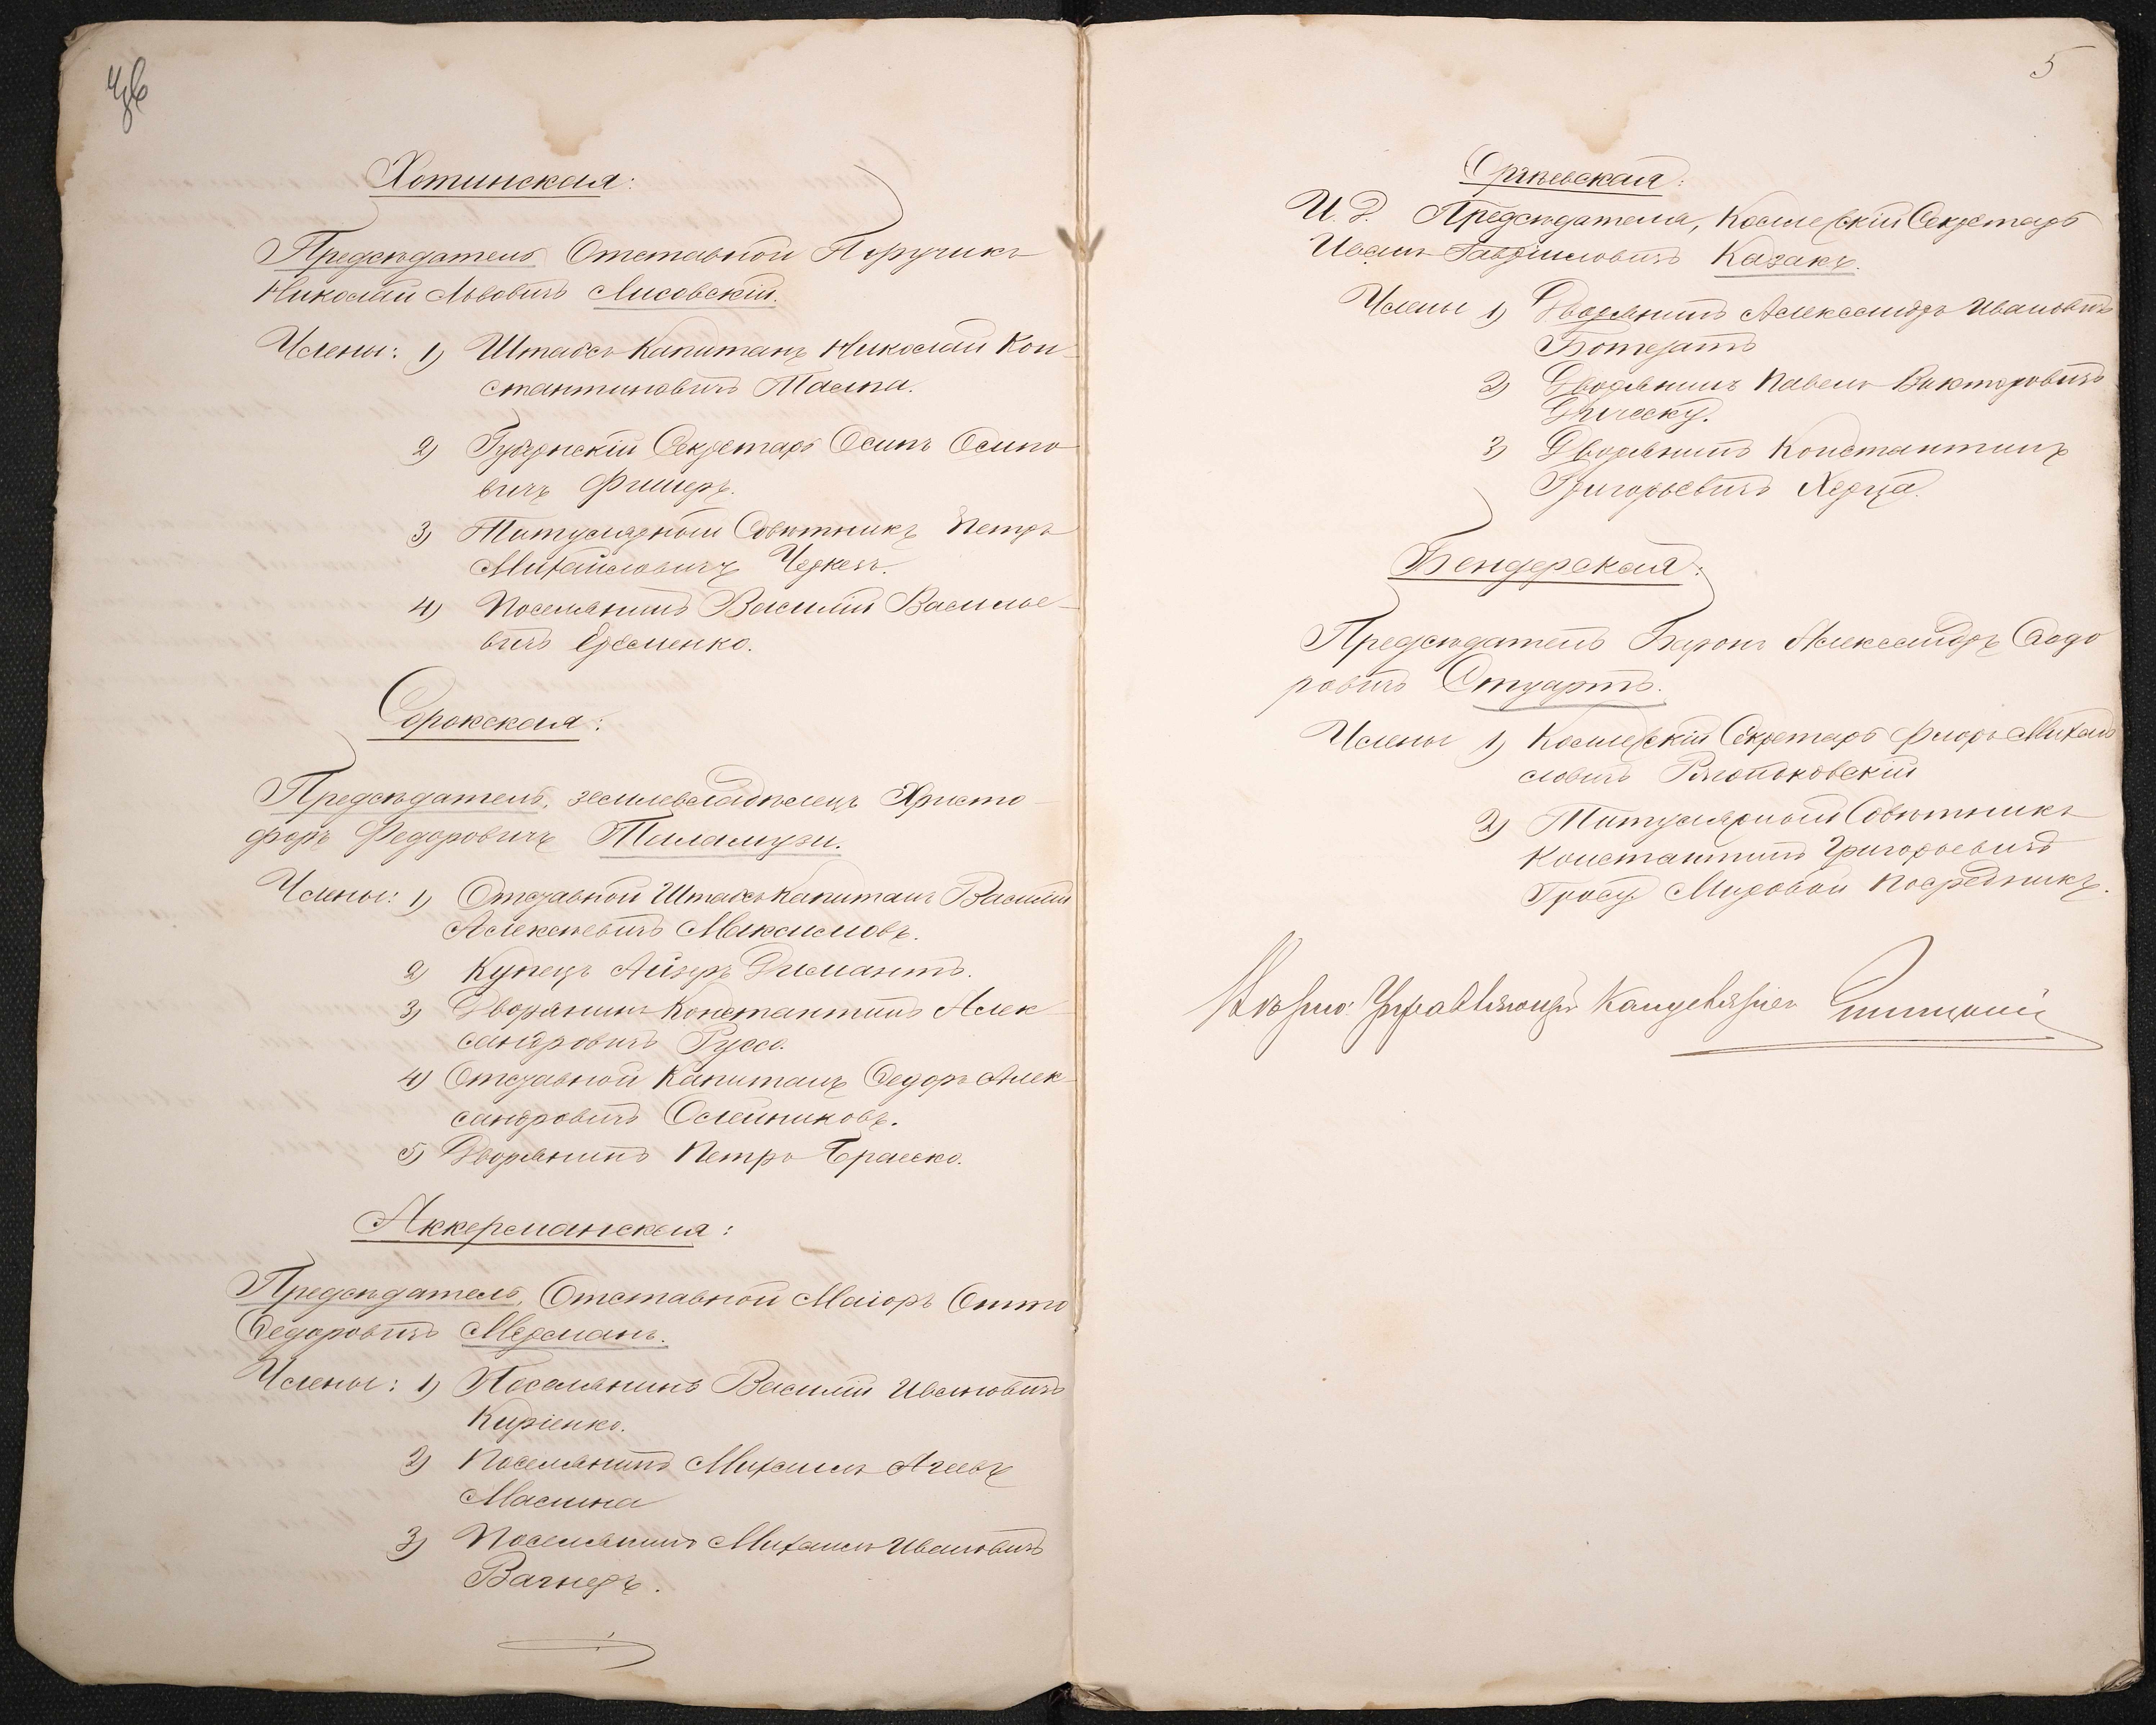 4об
Хотинская:
Предсѣдатель Отставной Поручикъ
Николай Львовичъ Лисовскій.
Члены: 1) Штабсъ-Капитанъ Николай Кон-
стантиновичъ Таспа.
2) Губернскій Секретарь Осипъ Осипо-
вичъ Фишеръ.
3) Титулярный Совѣтникъ Петръ
Михайловичъ Черкезъ.
4) Поселянинъ Василій Василье-
вичъ Еременко.
Сорокская:
Предсѣдатель, землевладѣлецъ Христо-
форъ Федоровичъ
Члены: 1) Отставной Штабсъ Капитанъ Василій
Алексѣевичъ Максимовъ.
2) Купецъ Айзеръ Димантъ.
3) Дворянинъ Константинъ Алек-
сандровичъ Руссо.
4) Отставной Капитанъ Федоръ Алек-
сандровичъ Олейниковъ.
5) Дворянинъ Петръ Браеско.
Аккерманская:
Предсѣдатель, Отставной Маіоръ Отто
Федоровичъ Мерманъ.
Члены: 1) Поселянинъ Василій Ивановичъ
Киріенко.
2) Поселянинъ Михаилъ Агеевъ
3) Поселянинъ Михаилъ Ивановичъ
Вагнеръ.
5
Оргѣевская:
И. Д. Предсѣдателя, Коллежскій Секретарь
Иванъ Гавриловичъ Казакъ.
Члены 1) Дворянинъ Александръ Ивановичъ
Ботезатъ
2) Дворянинъ Павелъ Викторовичъ
Дическу.
3) Дворянинъ Константинъ
Григорьевичъ Херца.
Бендерская:
Предсѣдатель Баронъ Александръ Федо
ровичъ Стуартъ.
Члены 1) Коллежскій Секретарь Флоръ Михай
ловичъ
2) Титулярный Совѣтникъ
Константинъ Григорьевичъ
Гросу Мировой Посредникъ.
Вѣрно: Управляющій Канцеляріею